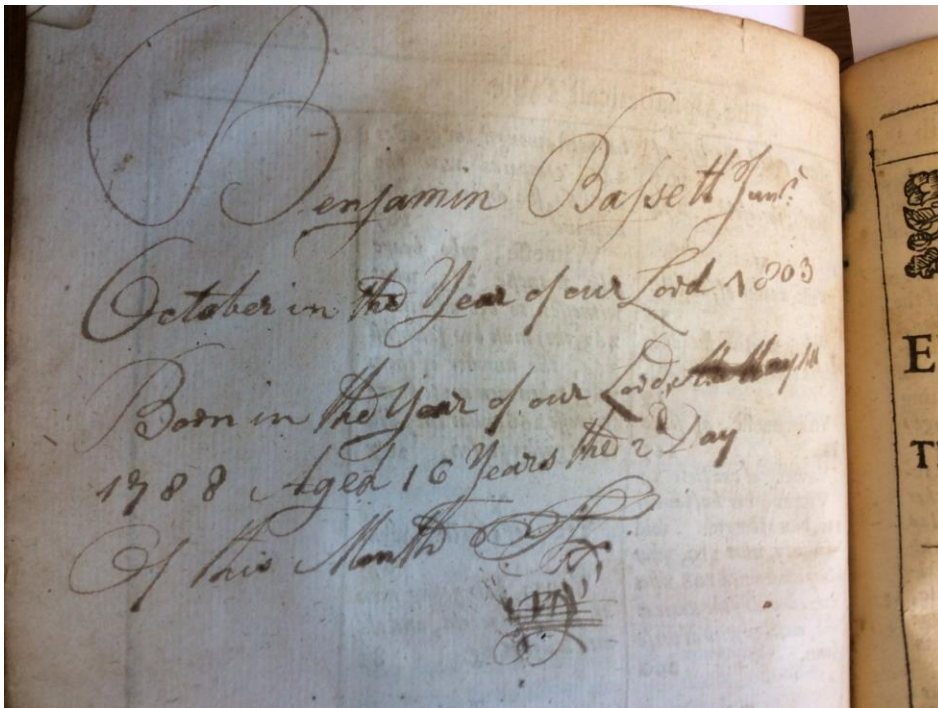 Benjamin Bassett Junr.
October in the Year of our Lord 1803
Born in the Year of our Lord
1788 Aged 16 Years the 2d Day
Of this Month
E
T